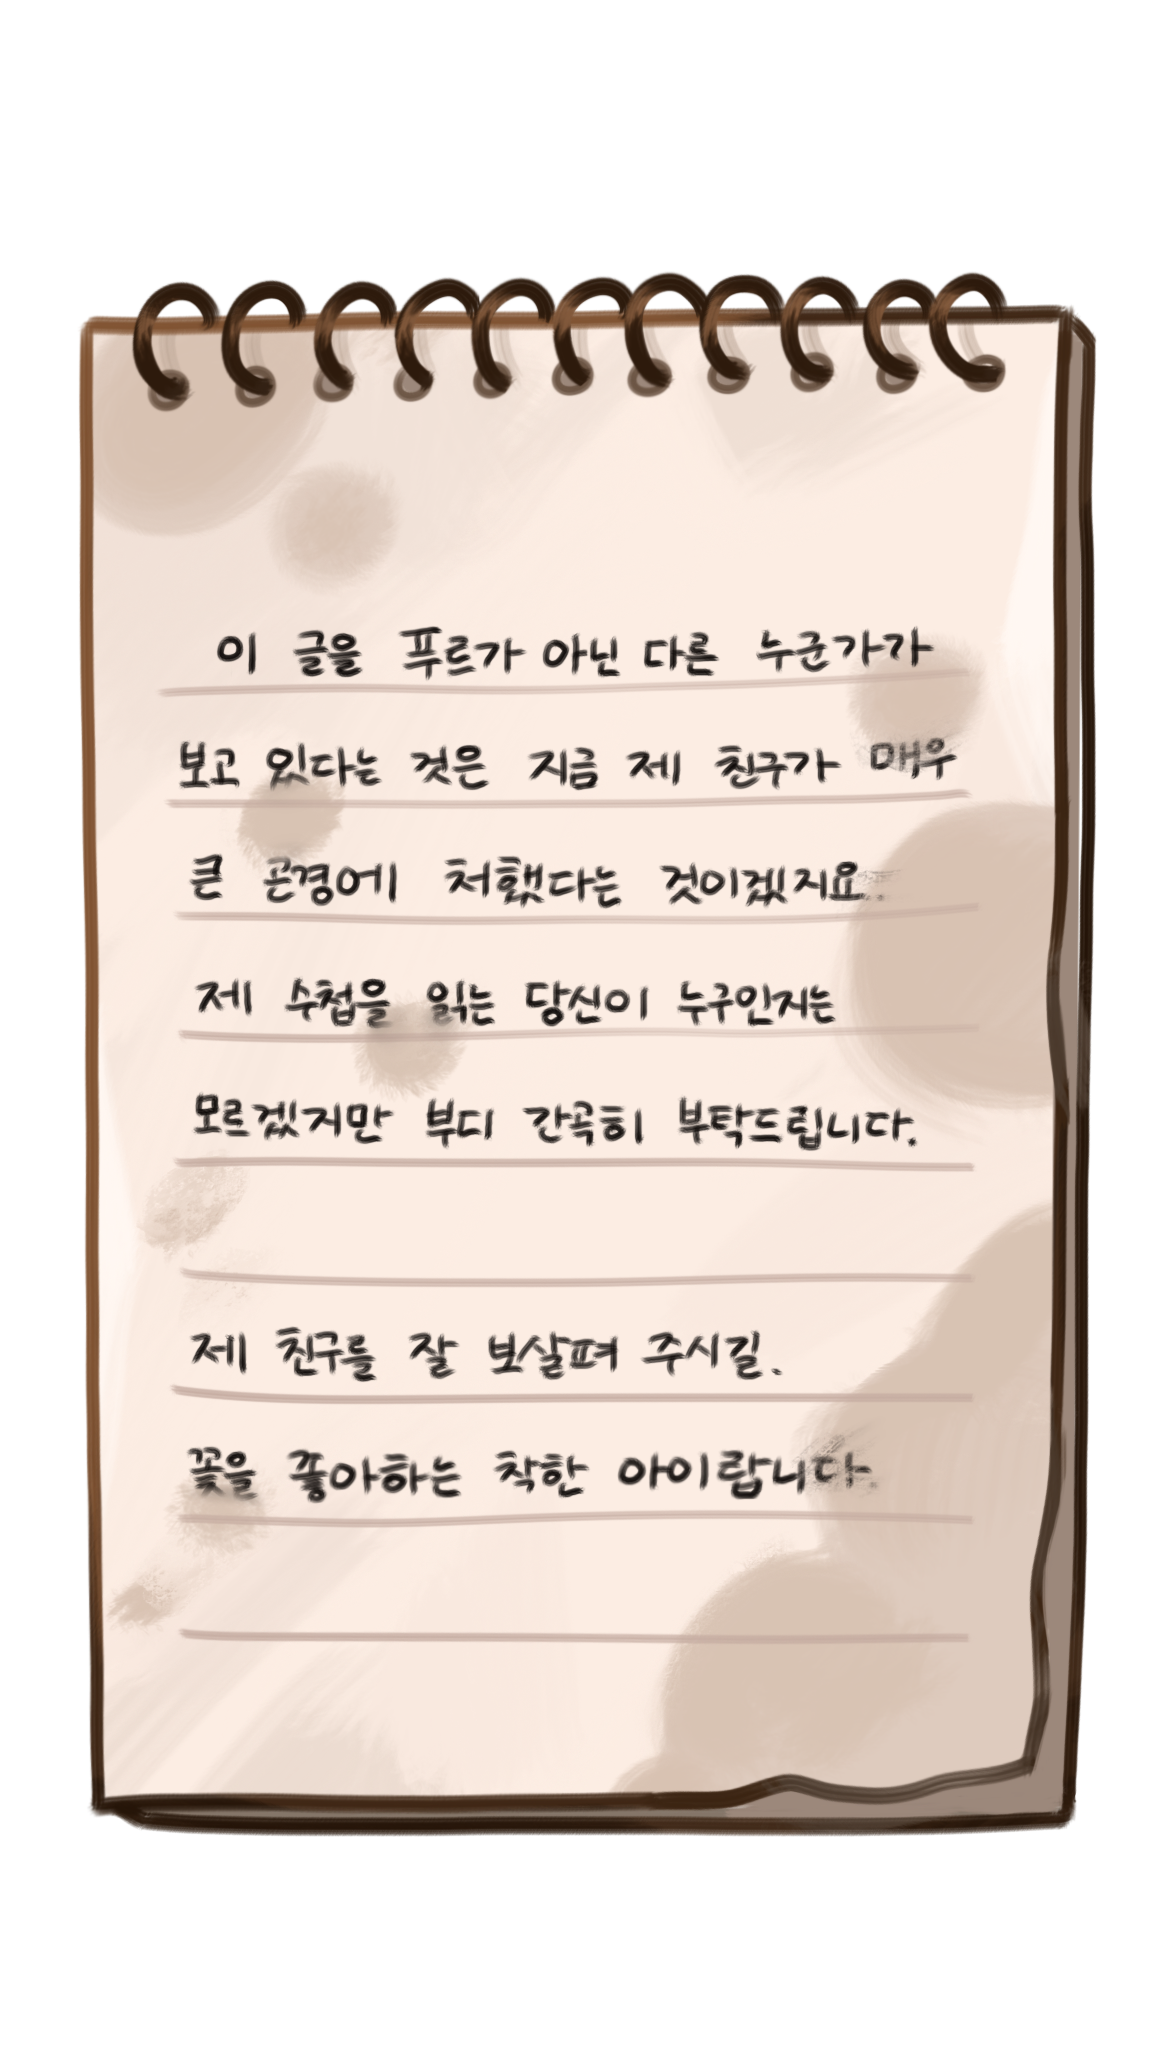 이 글을 푸르가 아닌 다른 누군가가
보고 있다는 것은 지금 제 친구가 매우
큰 곤경에 처했다는 것이겠지요..
제 수첩을 읽는 당신이 누구인지는
모르겠지만 부디 간곡히 부탁드립니다.
제 친구를 잘 보살펴 주시길.
꽃을 좋아하는 착한 아이랍니다.